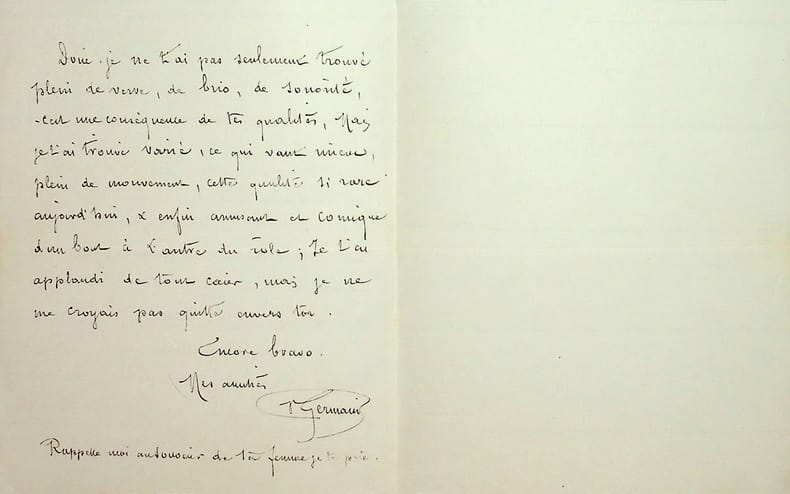 Donc je ne t'ai pas seulement trouvé
plein de verve, de brio, de sonorité,
c'est une conséquence de tes qualités, Mais
je t'ai trouvé varié, ce qui vaut mieux,
plein de mouvement, cette qualité si rare
aujourd'hui, & enfin amusant et comique
d'un bout à l'autre du rôle ; Je t'ai
applaudi de tout cœur, mais je ne
me croyais pas quitte envers toi.
Encore bravo.
Mes amitiés
Germain
Rappelle moi au souvenir de ta femme je te prie.